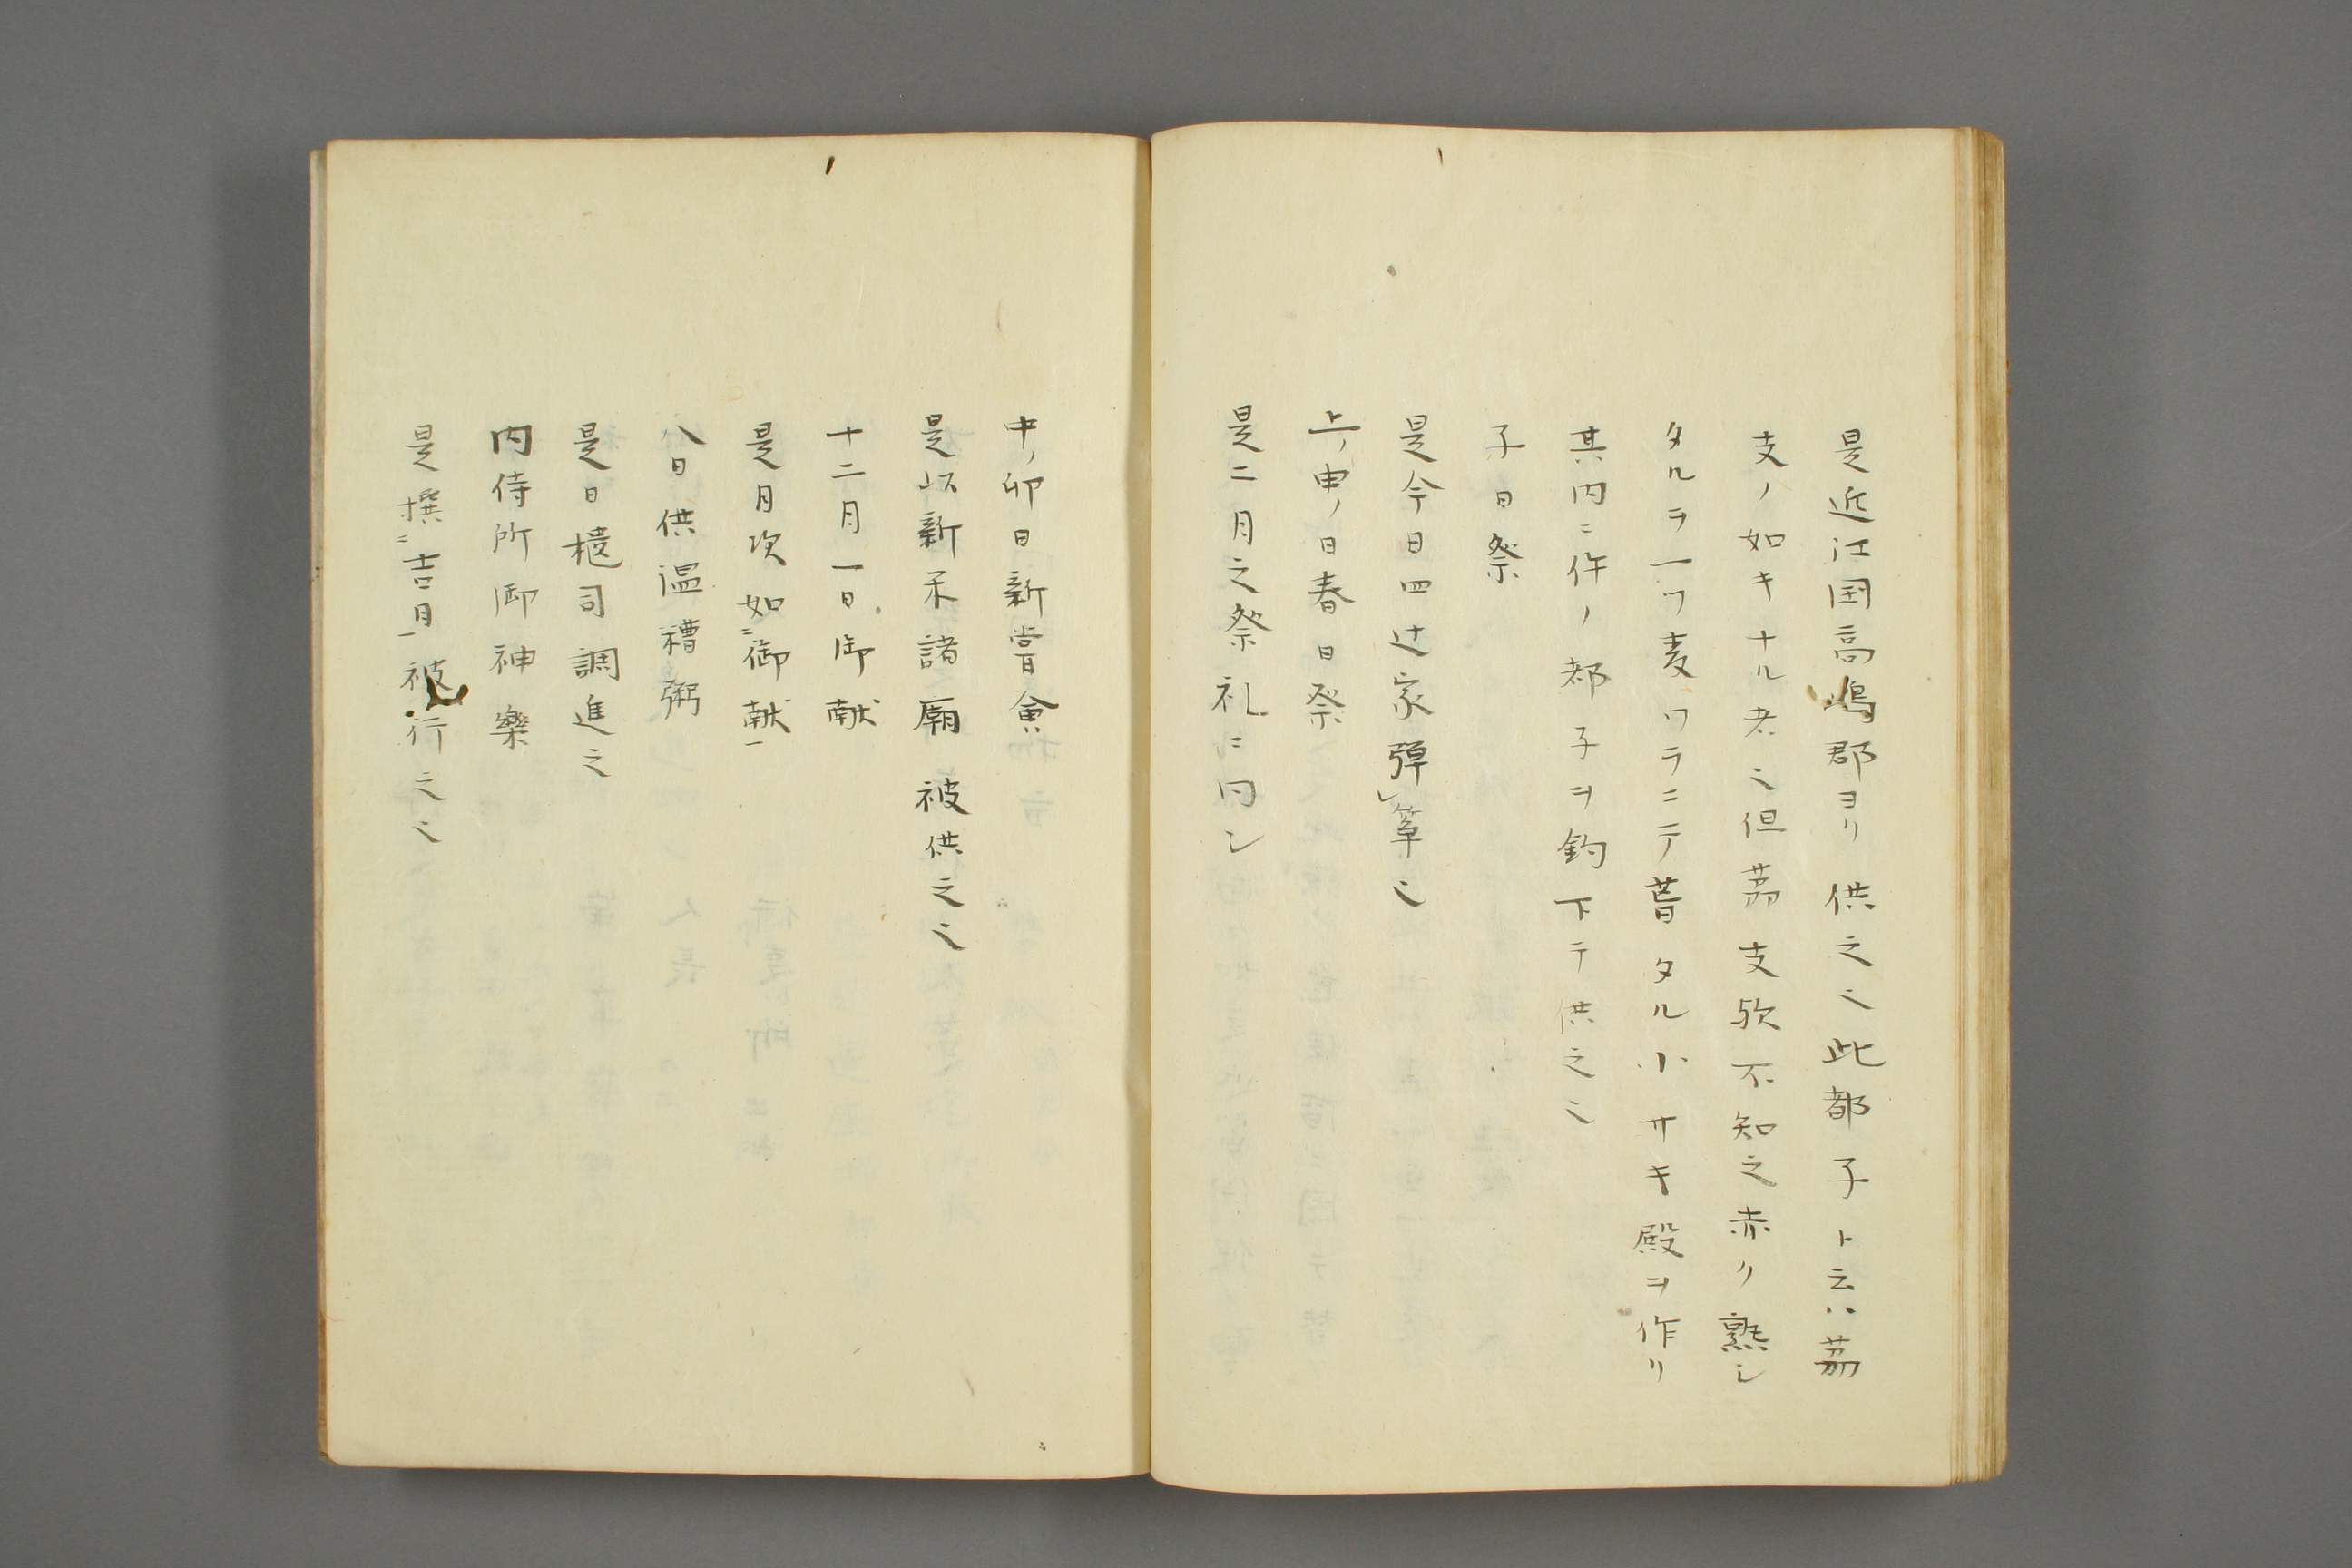 是近江国高嶋郡ヨリ供之〻此都子ト云ハ茘
支ノ如キナル者〻但茘支欤不知之赤ク熟シ
タルヲ一ツ麦ワラニテ葺タル小サキ殿ヲ作リ
其内ニ件ノ都子ヲ釣下テ供之〻
子日祭
是今日四辻家弾レ箏〻
上ノ申ノ日春日祭
是二月之祭礼ニ同シ
中ノ卯日新嘗會
是以新禾諸廟被供之〻
十二月一日御献
是月次如ニ御献一
八日供温糟粥
是日樻司調進之
内侍所御神樂
是撰ニ吉月一被行之〻